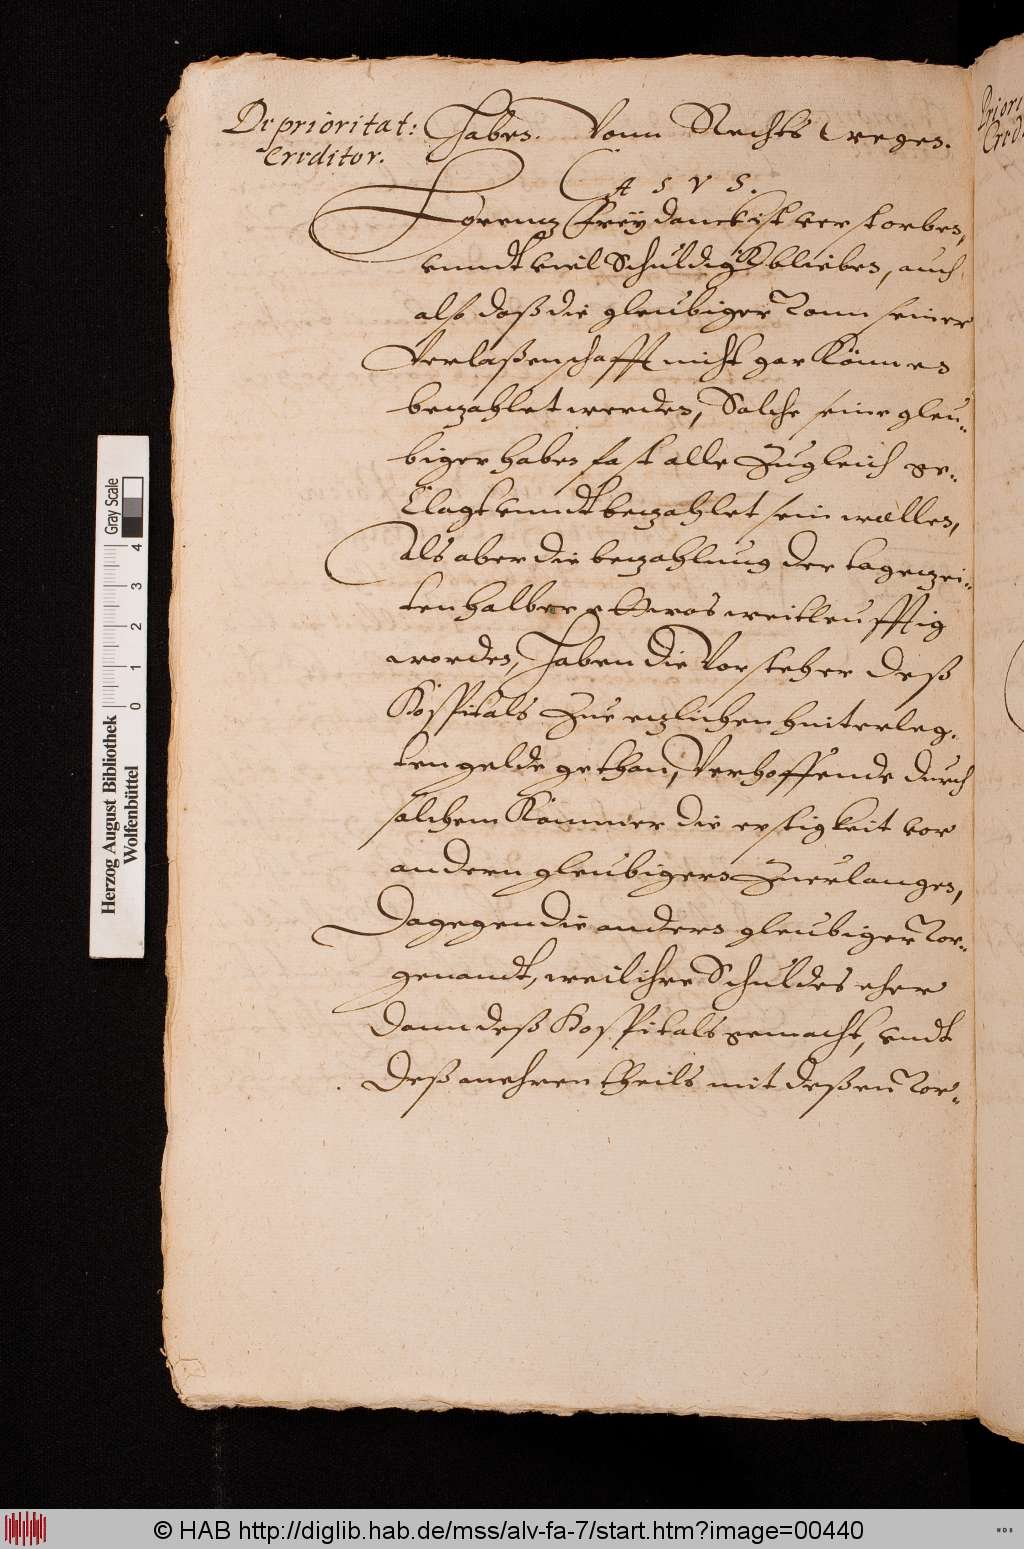 De prioritat:
Creditor.
haben. Vonn Rechts weegen.
CASVS.
Lorenz Freÿdanck ist verstorben,
vnndt viel Schuldig blieben, auch
also daß die gleubiger Vonn seiner
Verlaßenschafft nicht gar können
bezahlet werden, Solche seine gleu-
biger haben fast alle Zugleich ge-
klagt vnndt bezahlet sein wollen,
Als aber die bezahlung der tagezei-
ten halber etwas weitleufftig
worden, haben die Vorsteher deß
Hospitals Zue ezlichen hinterleg-
ten gelde gethan, Verhoffende durch
solchem Kommer die erstigkeit vor
andern gleubigern Zuerlangen,
Dagegen die andern gleubiger Vor-
genandt, weil ihre Schulden eher
dann deß Hospitals gemacht, vndt
deß mehren theils mit deßen Vor-
Priori
Cred
Herzog August Bibliothek
Wolfenbüttel
0 1 2 3 4
Gray Scale
© HAB http://diglib.hab.de/mss/alv-fa-7/start.htm?image=00440